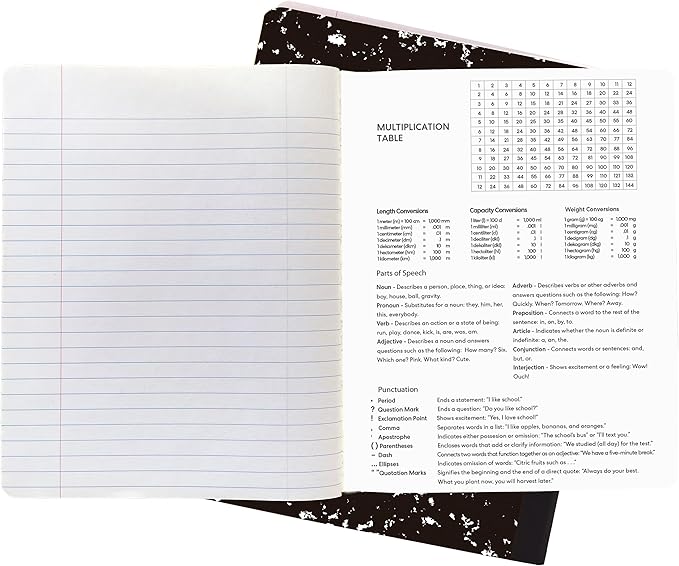 MULTIPLICATION
TABLE
1 2 3 4 5 6 7 8 9 10 11 12
2 4 6 8 10 12 14 16 18 20 22 24
3 6 9 12 15 18 21 24 27 30 33 36
4 8 12 16 20 24 28 32 36 40 44 48
5 10 15 20 25 30 35 40 45 50 55 60
6 12 18 24 30 36 42 48 54 60 66 72
7 14 21 28 35 42 49 56 63 70 77 84
8 16 24 32 40 48 56 64 72 80 88 96
9 18 27 36 45 54 63 72 81 90 99 108
10 20 30 40 50 60 70 80 90 100 110 120
11 22 33 44 55 66 77 88 99 110 121 132
12 24 36 48 60 72 84 96 108 120 132 144
Length Conversions
1 meter (m) = 100 cm = 1,000 mm
1 millimeter (mm) = .001 m
1 centimeter (cm) = .01 m
1 decimeter (dm) = .1 m
1 dekameter (dkm) = 10 m
1 hectometer (hm) = 100 m
1 kilometer (km) = 1,000 m
Capacity Conversions
1 liter (l) = 100 cl = 1,000 ml
1 milliliter (ml) = .001 l
1 centiliter (cl) = .01 l
1 deciliter (dl) = .1 l
1 dekaliter (dkl) = 10 l
1 hectoliter (hl) = 100 l
1 kiloliter (kl) = 1,000 l
Weight Conversions
1 gram (g) = 100 cg = 1,000 mg
1 milligram (mg) = .001 g
1 centigram (cg) = .01 g
1 decigram (dg) = .1 g
1 dekagram (dkg) = 10 g
1 hectogram (hg) = 100 g
1 kilogram (kg) = 1,000 g
Parts of Speech
Noun - Describes a person, place, thing, or idea:
bay, house, ball, gravity.
Pronoun - Substitutes for a noun: they, him, her,
this, everybody.
Verb - Describes an action or a state of being:
run, play, dance, kick, is, are, was, am.
Adjective - Describes a noun and answers
questions such as the following: How many? Six.
Which one? Pink. What kind? Cute.
Adverb - Describes verbs or other adverbs and
answers questions such as the following: How?
Quickly. When? Tomorrow. Where? Away.
Preposition - Connects a word to the rest of the
sentence: in, on, by, to.
Article - Indicates whether the noun is definite or
indefinite: a, an, the.
Conjunction - Connects words or sentences: and,
but, or.
Interjection - Shows excitement or a feeling: Wow!
Ouch!
Punctuation
. Period Ends a statement: "I like school."
? Question Mark Ends a question: "Do you like school?"
! Exclamation Point Shows excitement: "Yes, I love school!"
, Comma Separates words in a list: "I like apples, bananas, and oranges."
' Apostrophe Indicates either possesion or omission: "The school's bus" or "I'll text you."
( ) Parentheses Encloses words that add or clarify information: "We studied (all day) for the test."
– Dash Connects two words that function together as an adjective: "We have a five-minute break."
... Ellipses Indicates omission of words: "Citric fruits such as . . . ."
" " Quotation Marks Signifies the beginning and the end of a direct quote: "Always do your best.
What you plant now, you will harvest later."